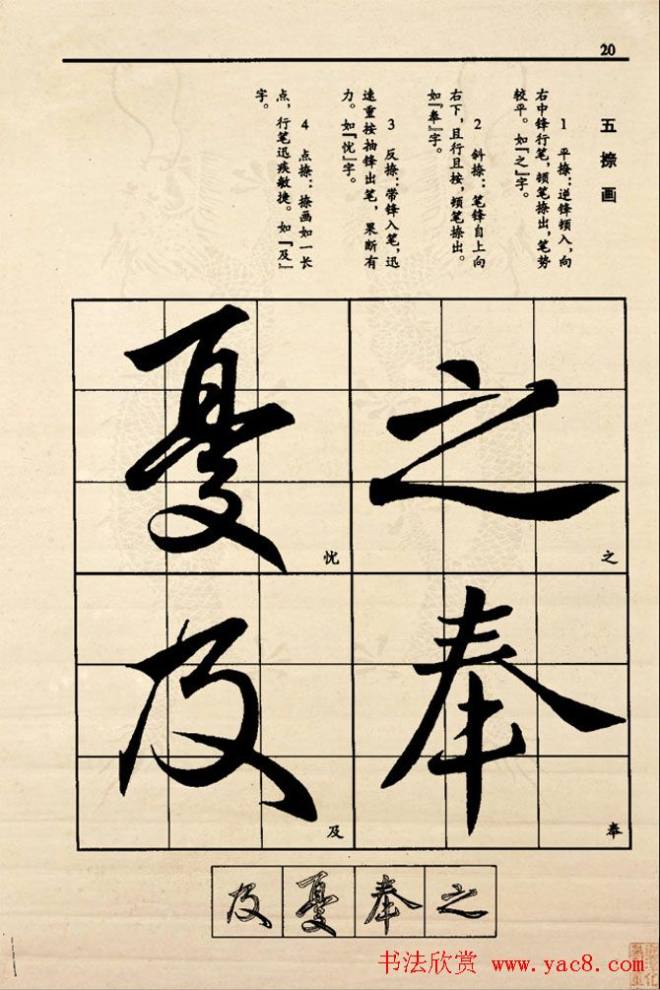 20
五 捺画
1 平捺：逆锋顿入，向
右中锋行笔，顿笔捺出，笔势
较平。如『之』字。
2 斜捺：笔锋自上向
右下，且行且按，顿笔捺出。
如『奉』字。
3 反捺：带锋入笔，迅
速重按抽锋出笔，果断有
力。如『忧』字。
4 点捺：捺画如一长
点，行笔迅疾敏捷。如『及』
字。
之
之
奉
奉
憂
忧
及
及
之 奉 憂 及
书法欣赏 www.yac8.com